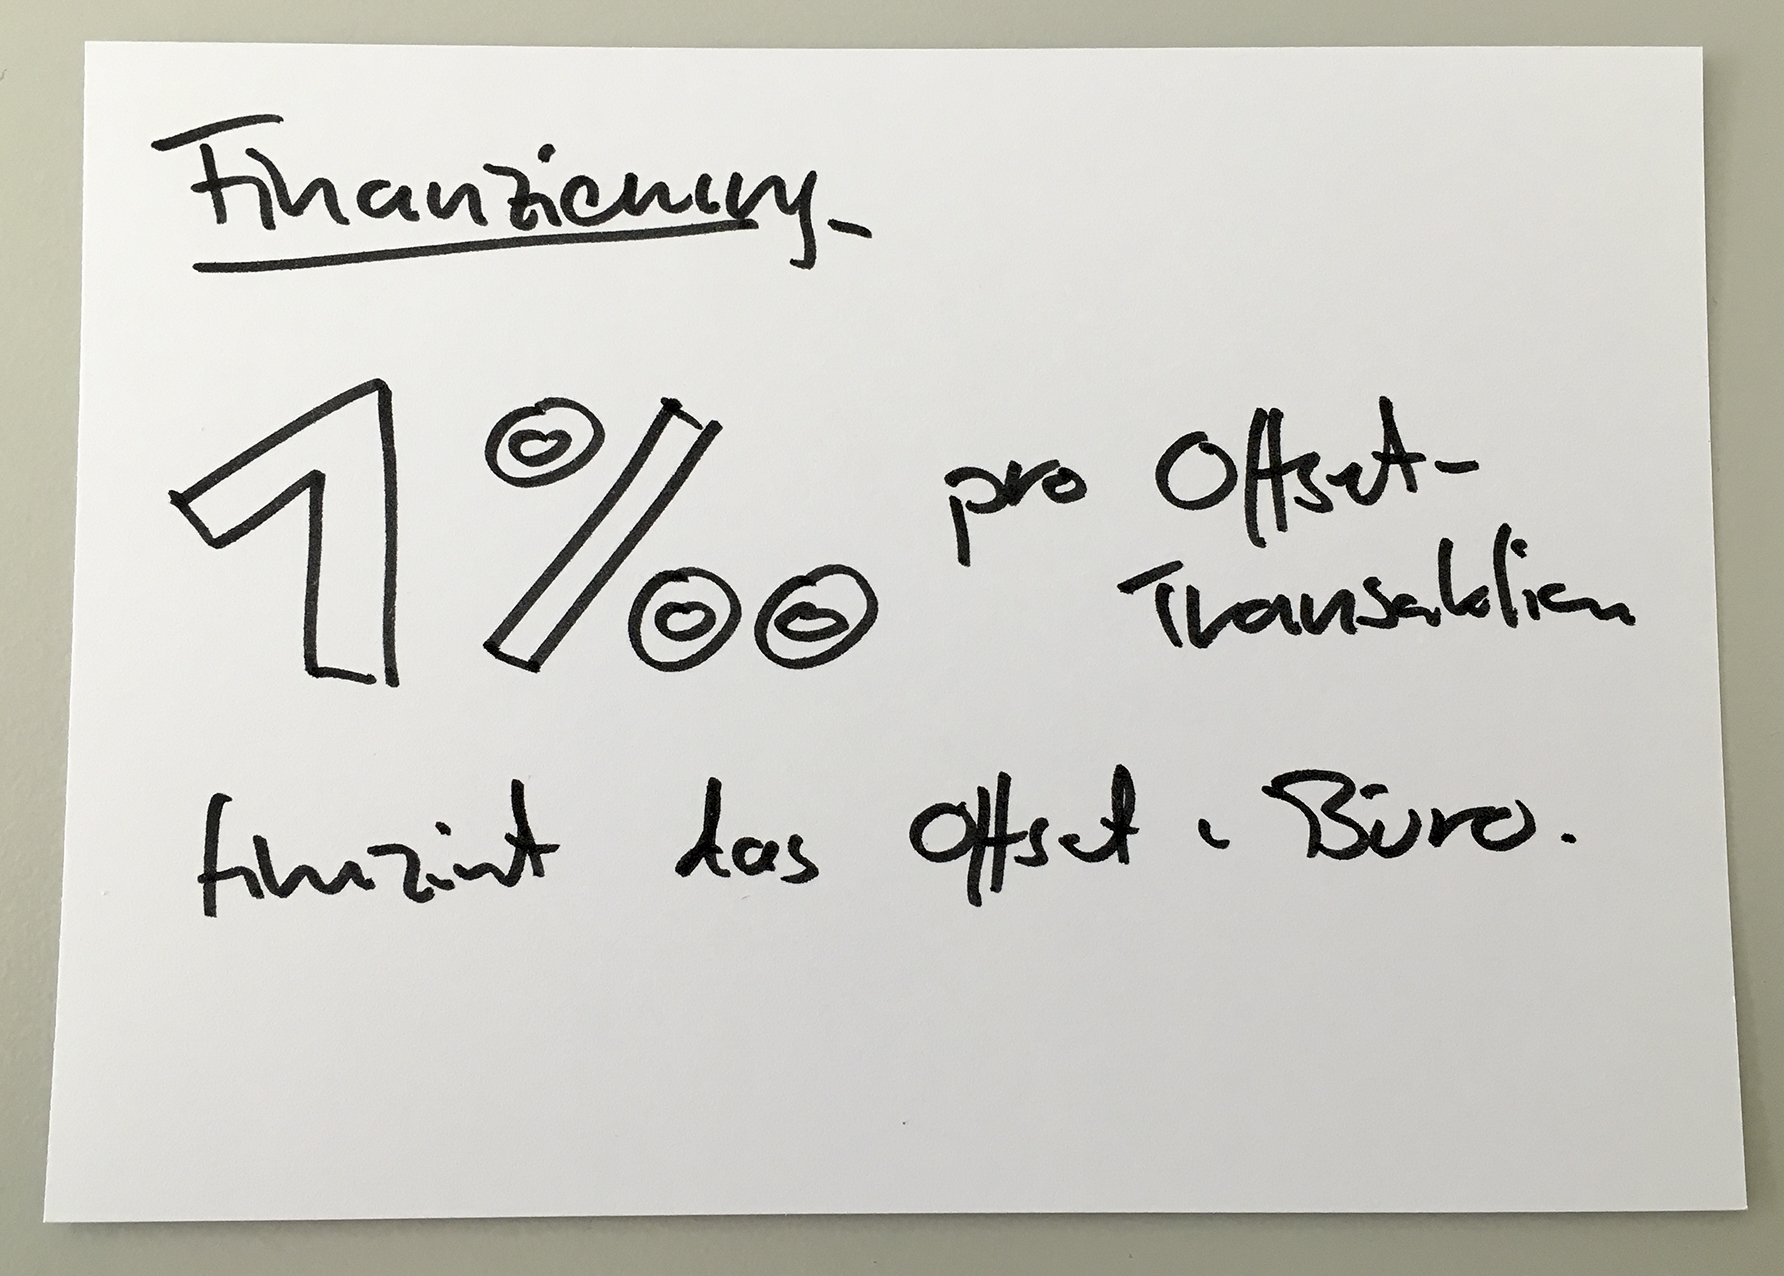 Finanzierung
1‰ pro Offset-
Transaktion
finanziert das Offset-Büro.